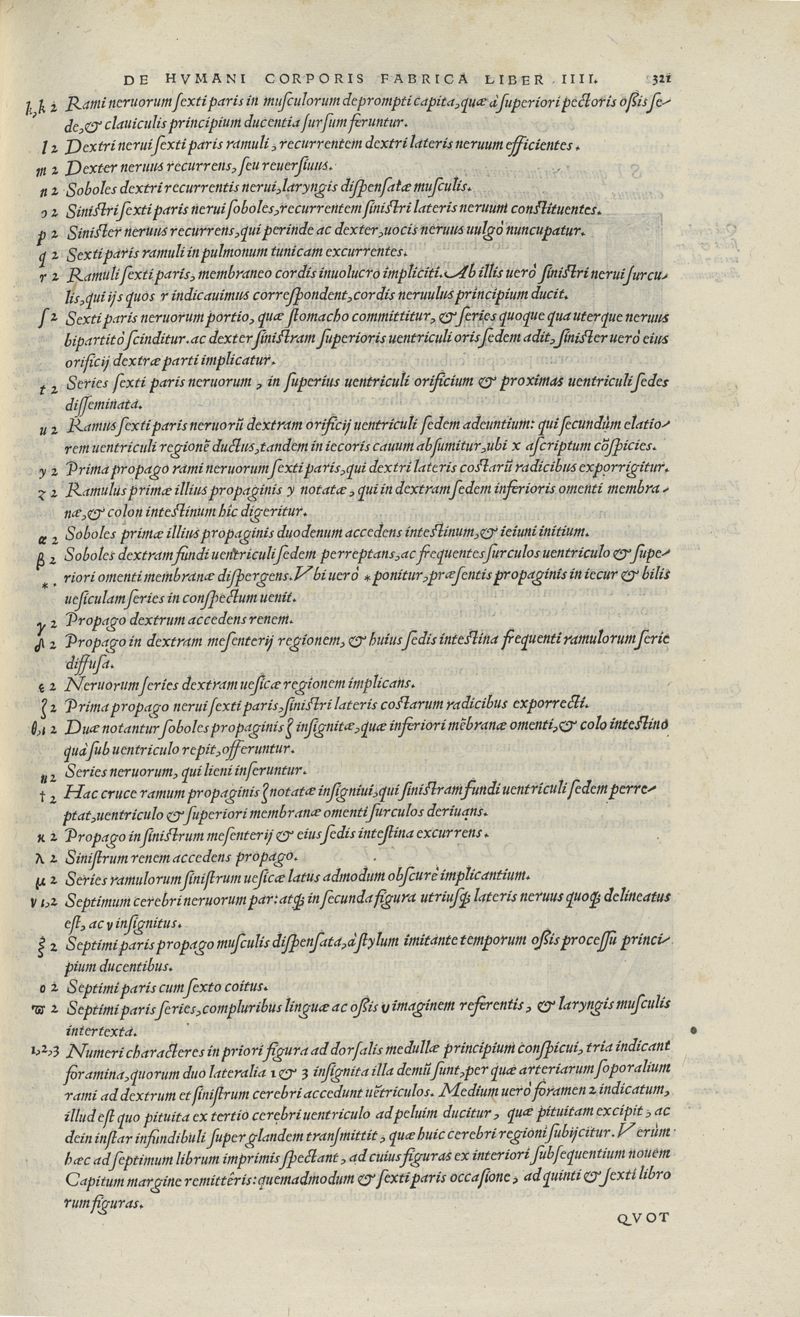 DE HVMANI CORPORIS FABRICA LIBER IIII. 321
k,k 2 Rami neruorum sexti paris in musculorum deprompti capita, quæ à superiori pectoris ossis se-
de, & clauiculis principium ducentia sursum feruntur.
l 2 Dextri nerui sexti paris ramuli, recurrentem dextri lateris neruum efficientes.
m 2 Dexter neruus recurrens, seu reuersiuus.
n 2 Soboles dextri recurrentis nerui, laryngis dispensatæ musculis.
o 2 Sinistri sexti paris nerui soboles, recurrentem sinistri lateris neruum constituentes.
p 2 Sinister neruus recurrens, qui perinde ac dexter, uocis neruus uulgò nuncupatur.
q 2 Sexti paris ramuli in pulmonum tunicam excurrentes.
r 2 Ramuli sexti paris, membraneo cordis inuolucro impliciti. Ab illis uerò sinistri nerui surcu-
lis, qui ijs quos r indicauimus correspondent, cordis neruulus principium ducit.
ſ 2 Sexti paris neruorum portio, quæ stomacho committitur, & series quoque qua uterque neruus
bipartitò scinditur. ac dexter sinistram superioris uentriculi oris sedem adit, sinister uerò eius
orificij dextræ parti implicatur.
t 2 Series sexti paris neruorum, in superius uentriculi orificium & proximas uentriculi sedes
disseminata.
u 2 Ramus sexti paris neruorū dextram orificij uentriculi sedem adeuntium: qui secundùm elatio-
rem uentriculi regionē ductus, tandem in iecoris cauum absumitur, ubi x ascriptum cōspicies.
y 2 Prima propago rami neruorum sexti paris, qui dextri lateris costarū radicibus exporrigitur.
z 2 Ramulus primæ illius propaginis y notatæ, qui in dextram sedem inferioris omenti membra-
næ, & colon intestinum hic digeritur.
α 2 Soboles primæ illius propaginis duodenum accedens intestinum, & ieiuni initium.
β 2 Soboles dextram fundi uentriculi sedem perreptans, ac frequentes surculos uentriculo & supe-
* . riori omenti membranæ dispergens. Vbi uerò * ponitur, præsentis propaginis in iecur & bilis
uesiculam series in conspectum uenit.
γ 2 Propago dextrum accedens renem.
δ 2 Propago in dextram mesenterij regionem, & huius sedis intestina frequenti ramulorum serie
diffusa.
ε 2 Neruorum series dextram uesicæ regionem implicans.
ζ 2 Prima propago nerui sexti paris, sinistri lateris costarum radicibus exporrecti.
θ,ι 2 Duæ notantur soboles propaginis ζ insignitæ, quæ inferiori mēbranæ omenti, & colo intestino
quà sub uentriculo repit, offeruntur.
η 2 Series neruorum, qui lieni inseruntur.
† 2 Hac cruce ramum propaginis ζ notatæ insigniui, qui sinistram fundi uentriculi sedem perre-
ptat, uentriculo & superiori membranæ omenti surculos deriuans.
κ 2 Propago in sinistrum mesenterij & eius sedis intestina excurrens.
λ 2 Sinistrum renem accedens propago.
μ 2 Series ramulorum sinistrum uesicæ latus admodum obscurè implicantium.
ν 1,2 Septimum cerebri neruorum par: atq; in secunda figura utriusq; lateris neruus quoq; delineatus
est, ac ν insignitus.
ξ 2 Septimi paris propago musculis dispensata, à stylum imitante temporum ossis processu princi-
pium ducentibus.
ο 2 Septimi paris cum sexto coitus.
ϖ 2 Septimi paris series, compluribus linguæ ac ossis υ imaginem referentis, & laryngis musculis
intertexta.
1,2,3 Numeri characteres in priori figura ad dorsalis medullæ principium conspicui, tria indicant
foramina, quorum duo lateralia 1 & 3 insignita illa demū sunt, per quæ arteriarum soporalium
rami ad dextrum et sinistrum cerebri accedunt uētriculos. Medium uerò foramen 2 indicatum,
illud est quo pituita ex tertio cerebri uentriculo ad peluim ducitur, quæ pituitam excipit, ac
dein instar infundibuli super glandem transmittit, quæ huic cerebri regioni subijcitur. Verùm
hæc ad septimum librum imprimis spectant, ad cuius figuras ex interiori subsequentium nouem
Capitum margine remittêris: quemadmodum & sexti paris occasione, ad quinti & sexti libro
rum figuras.
QVOT